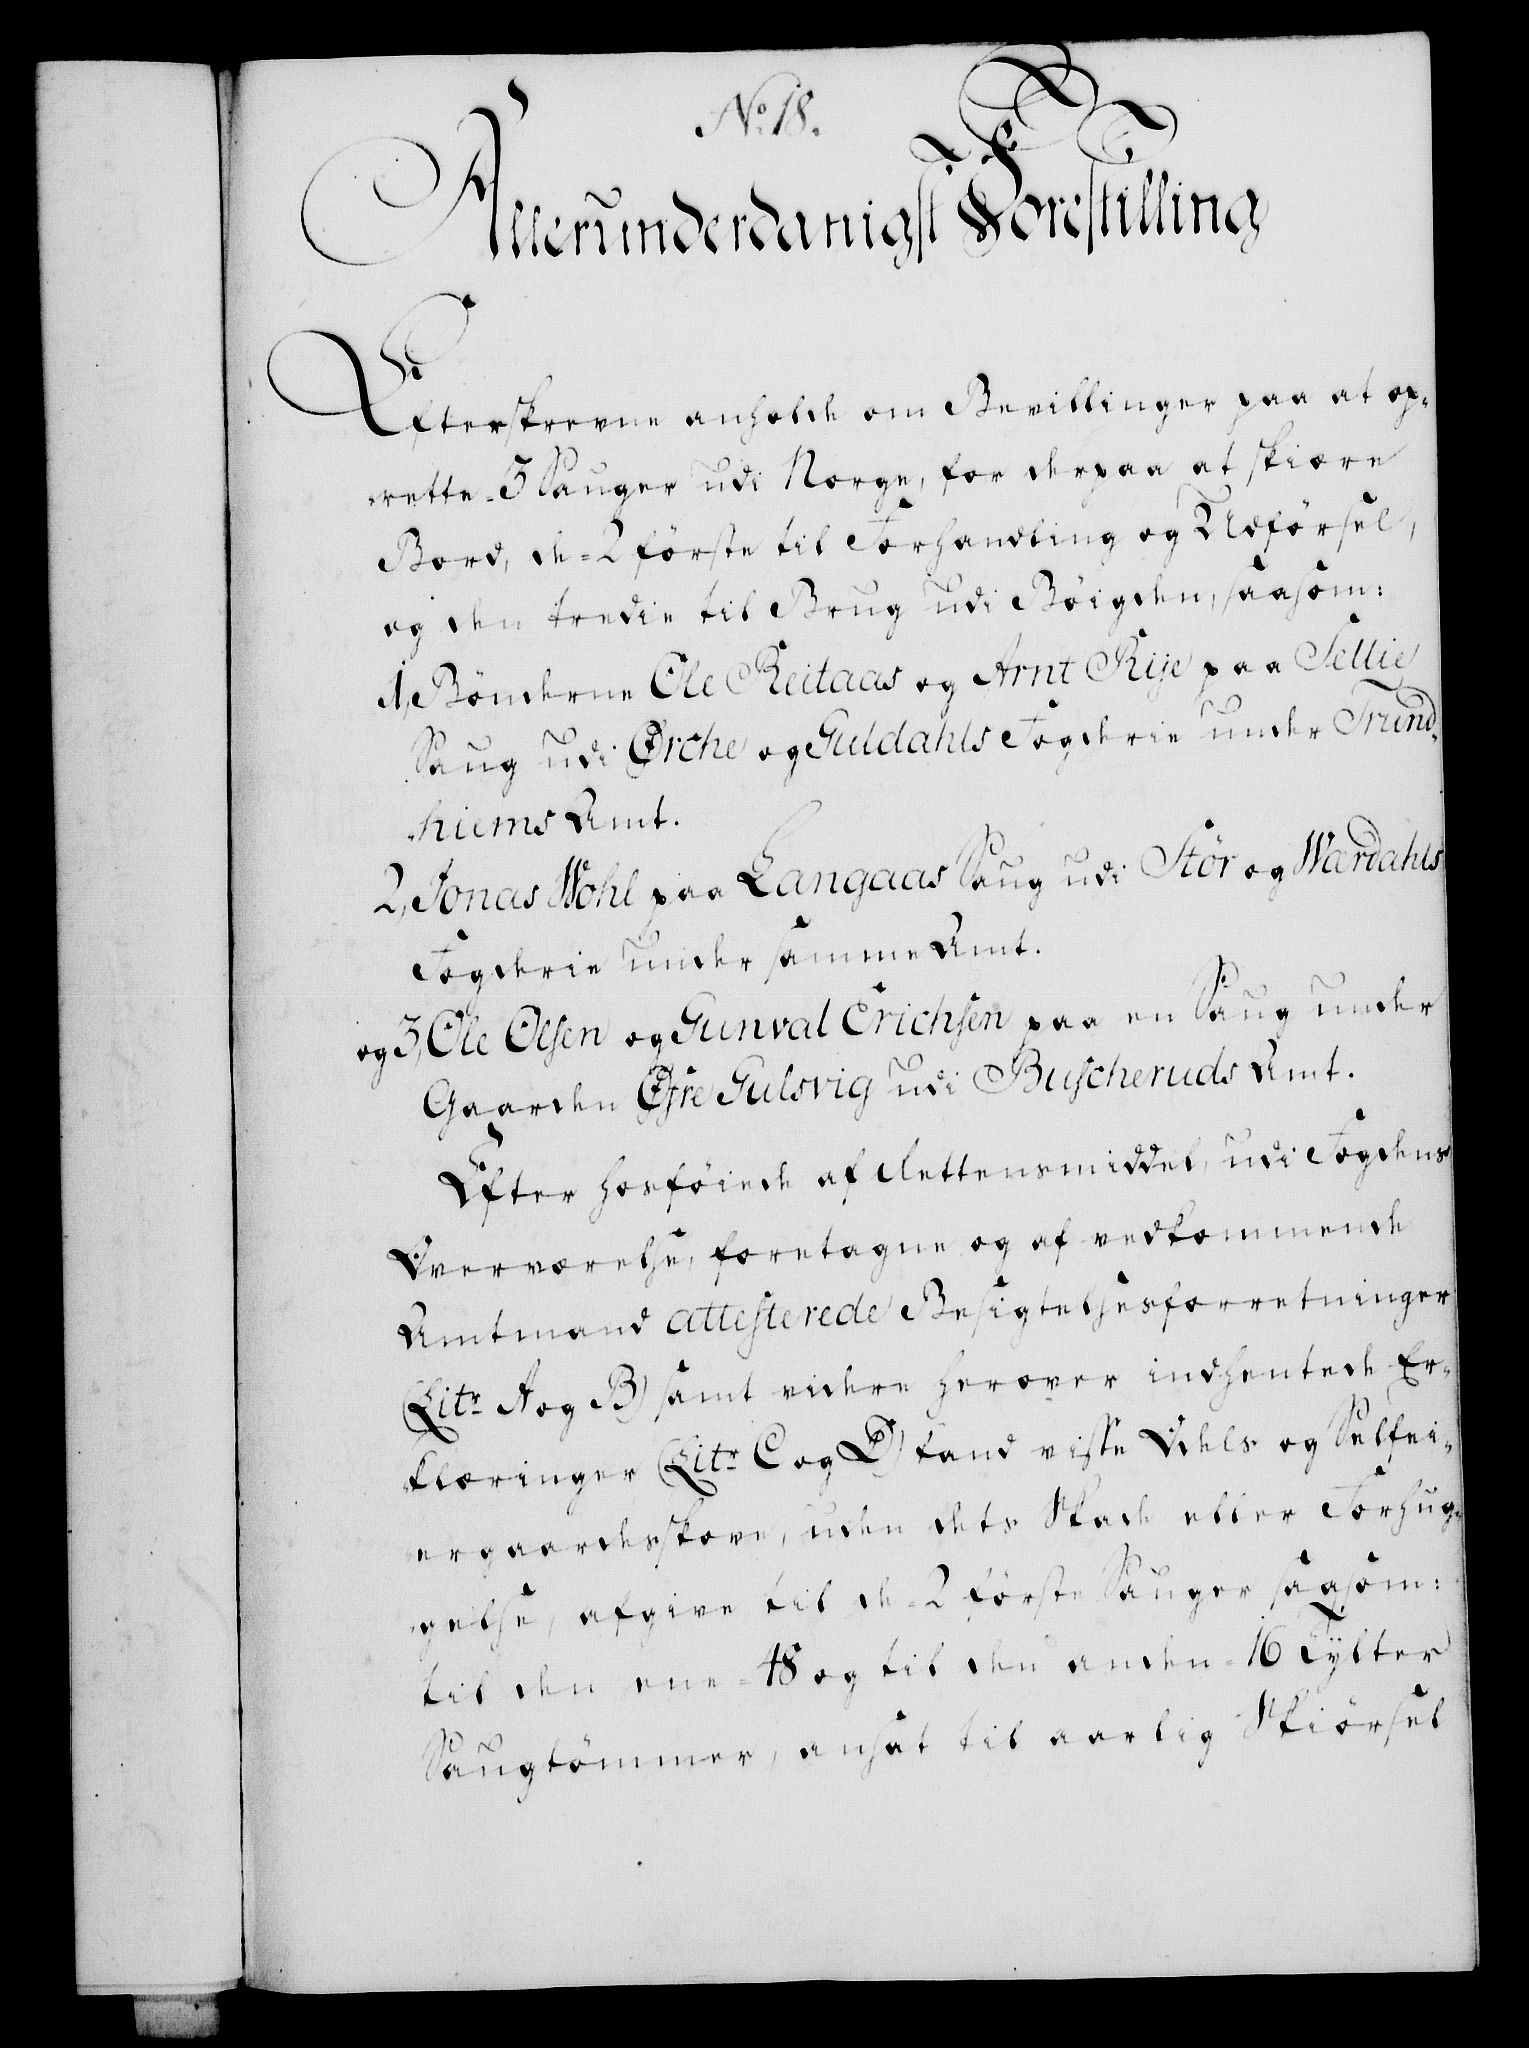 No. 18.
Allerunderdanigst Forestilling
Efterskrevne anholde om Bevillinger paa at op-
rette 3 Sauger udi Norge, for derpaa at skiære
Bord, de 2 første til Forhandling og Udførsel,
og den tredie til Brug udi Bøigden, saasom:
1, Bønderne Ole Reitaas og Arnt Rije paa Sellie
Saug udi Ørche og Guldahls Fogderie under Trund-
hiems Amt.
2, Jonas Wohl paa Langaas Saug udi Stör og Wærdahls
Fogderie under samme Amt.
og 3, Ole Olsen og Gunval Erichsen paa en Saug under
Gaarden Øfre Gulsvig udi Buscheruds Amt.
Efter hosføiede af Rettensmiddel, udi Fogdens
Overværelse, foretagne og af vedkommende
Amtmand attesterede Besigtelsesforretninger
(Litr. A og B) samt videre herover indhentede Er-
klæringer (Litr. C og D) kand visse Odels og Selfei-
ergaardesskove, uden dets Skade eller Forhug-
gelse, afgive til de 2 første Sauger saasom:
til den ene 48 og til den anden 16 Tylter
Saugtømmer, ansat til aarlig Skiørsel